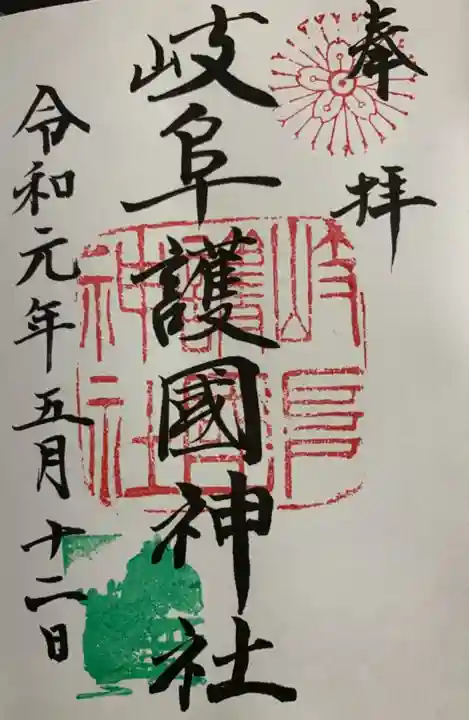 奉拝
岐阜護國神社
岐阜護國神社
令和元年五月十二日